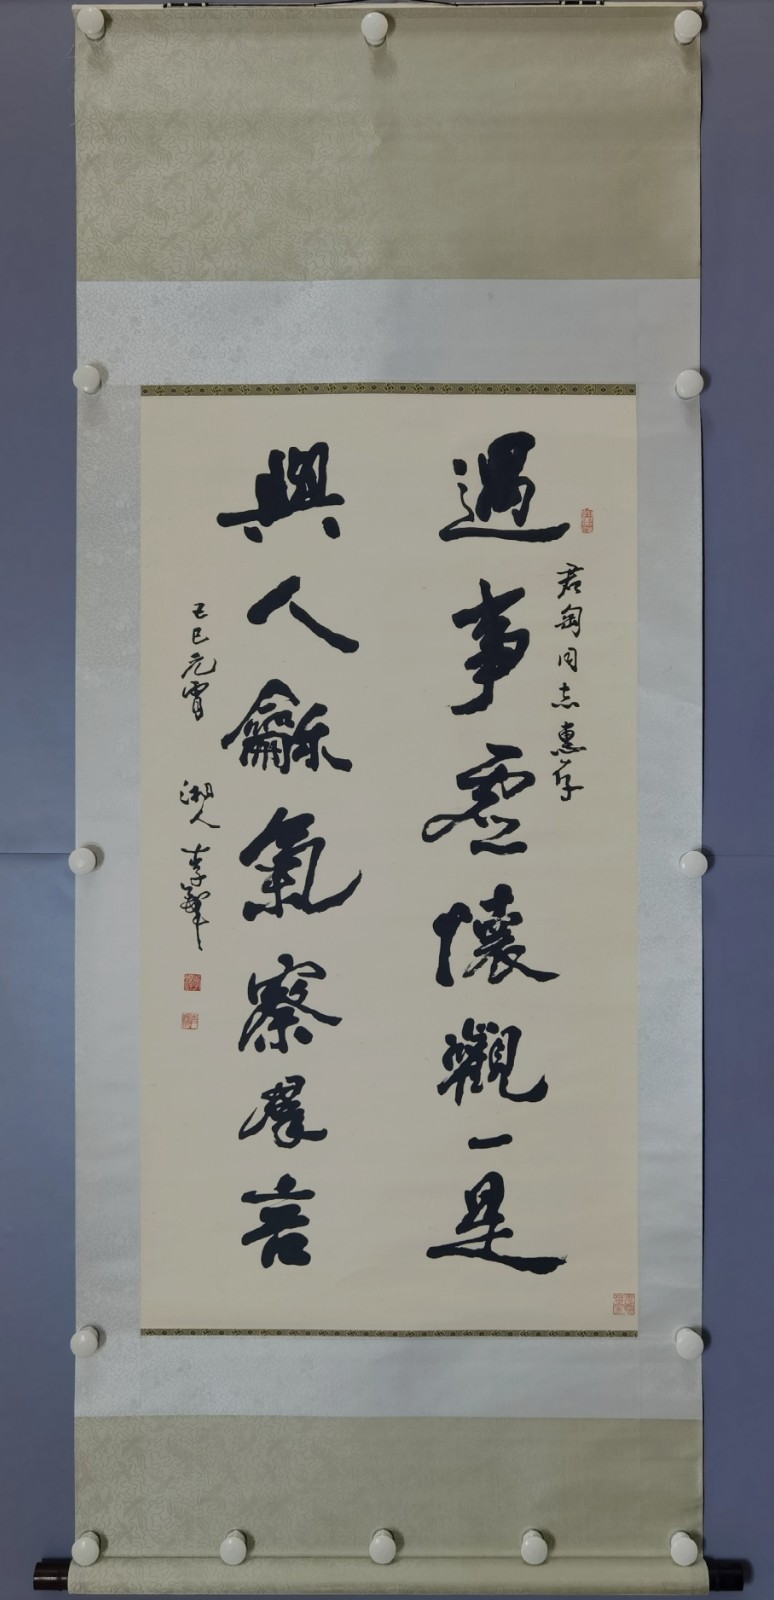 君匋同志惠存
遇事虚懷觀一是
與人龢氣察羣言
己巳元宵
湘人李鐸